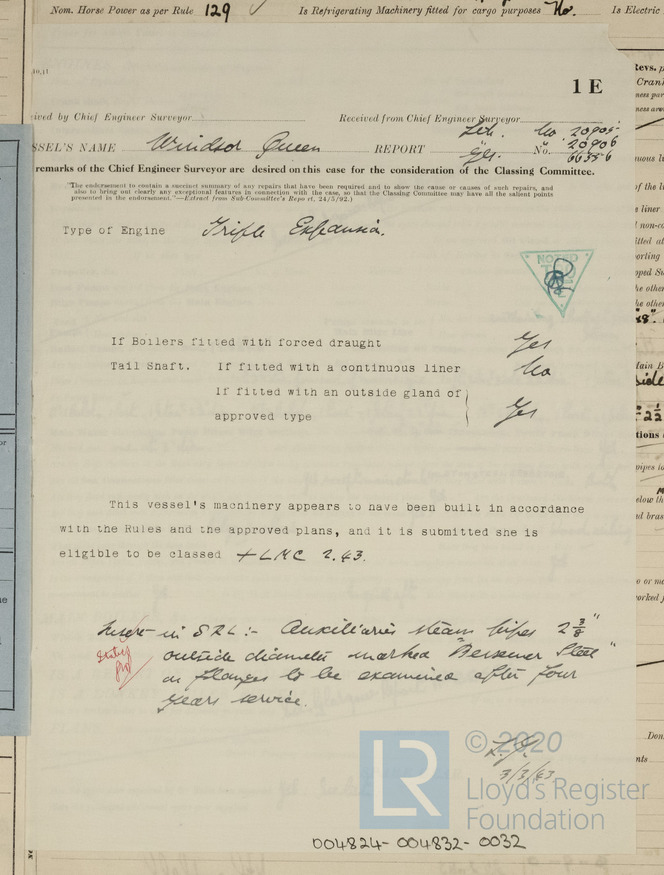 Nom. Horse Power as per Rule 129 Is Refrigerating Machinery fitted for cargo purposes No. Is Electric
1 E
ived by Chief Engineer Surveyor Received from Chief Engineer Surveyor
Lth. No. 20905
SSEL'S NAME Windsor Queen REPORT Gls. No. 20906
66356
remarks of the Chief Engineer Surveyor are desired on this case for the consideration of the Classing Committee.
"The endorsement to contain a succinct summary of any repairs that have been required and to show the cause or causes of such repairs, and
also to bring out clearly any exceptional features in connection with the case, so that the Classing Committee may have all the salient points
presented in the endorsement."—Extract from Sub-Committee's Report. 24/5/92.)
Type of Engine Triple Expansion.
NOTED
If Boilers fitted with forced draught Yes
Tail Shaft. If fitted with a continuous liner No
If fitted with an outside gland of
approved type Yes
This vessel's machinery appears to have been built in accordance
with the Rules and the approved plans, and it is submitted she is
eligible to be classed +LMC 2.43.
Insert in SRL:- Auxiliaries steam pipes 2 3/8"
outside diameter marked "Bessemer Steel"
on flanges to be examined after four
years service.
3/3/43
© 2020
LR
Lloyd's Register
Foundation
004824-004832-0032